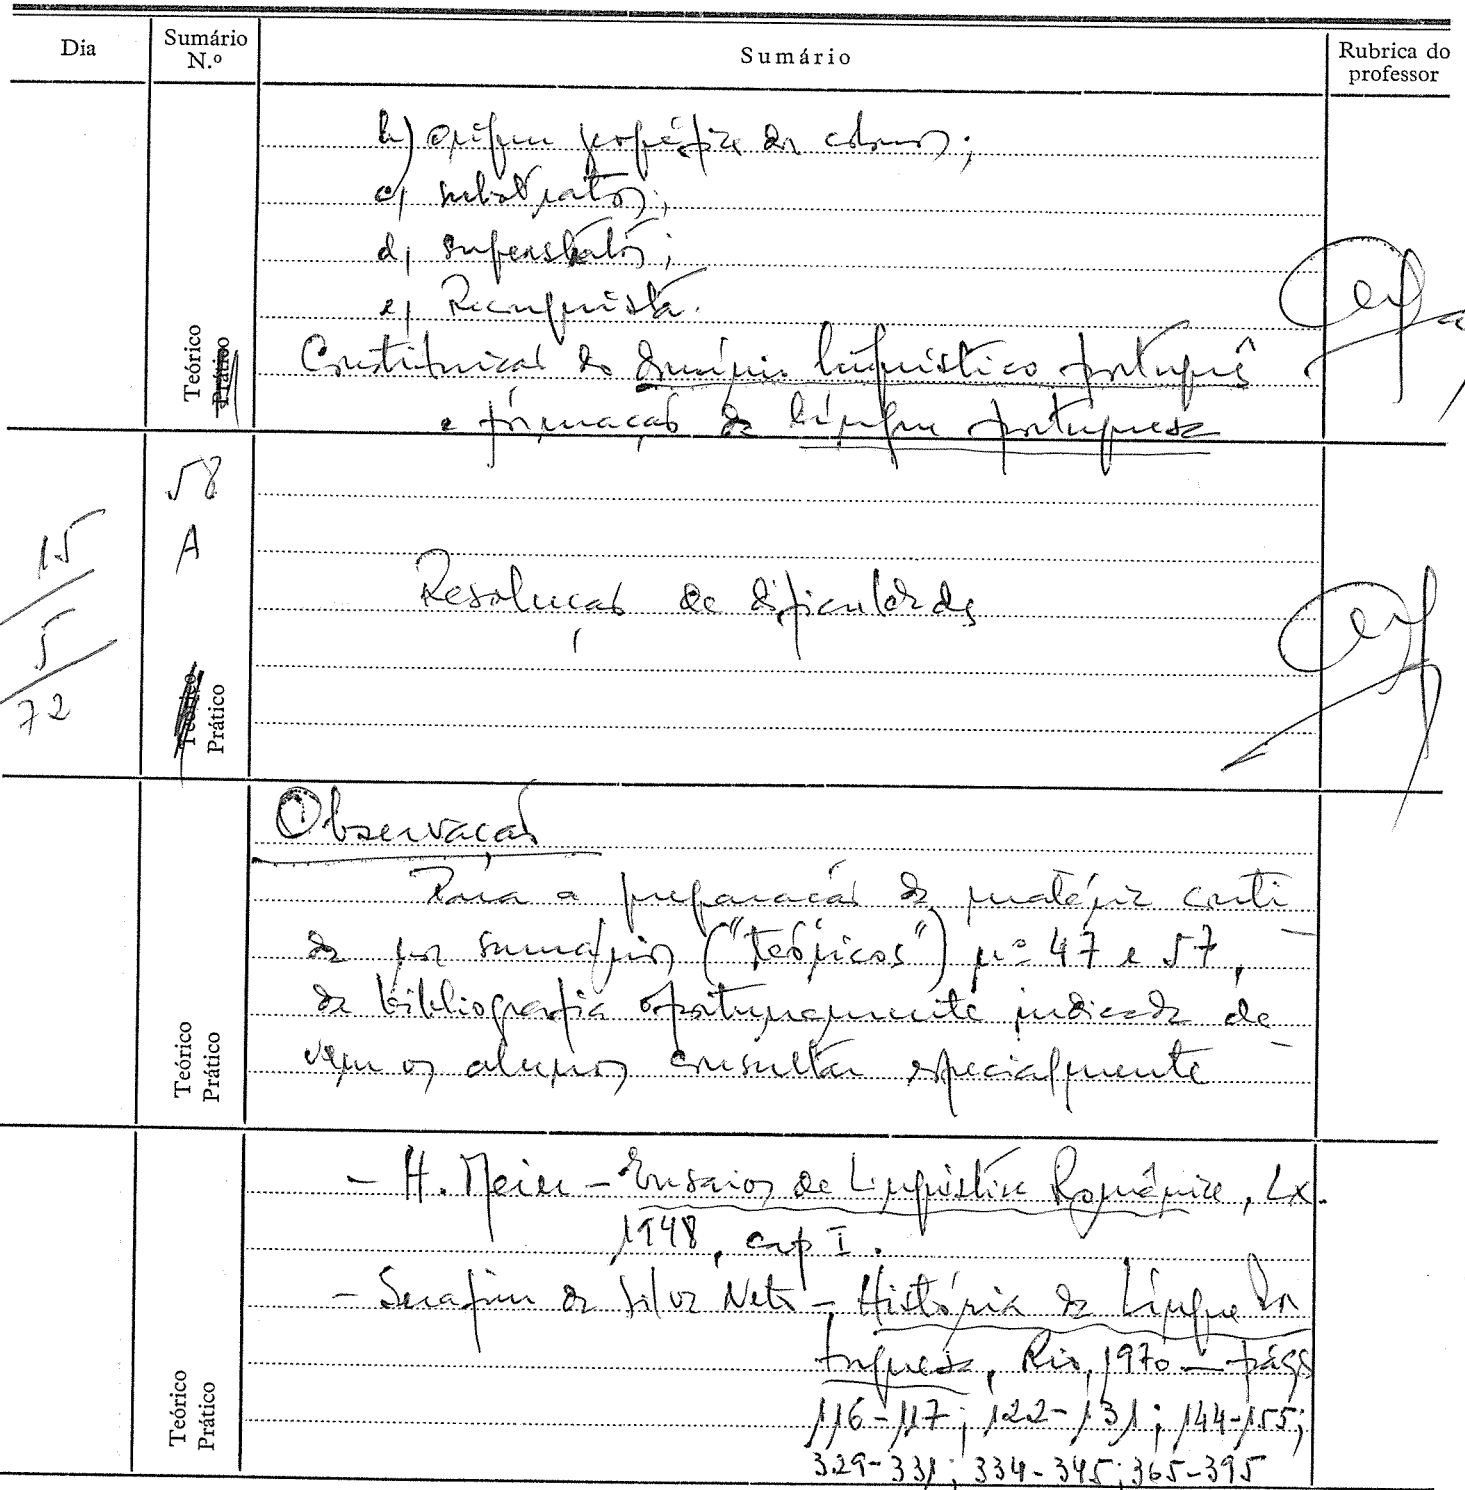 Dia
Sumário N.º
Sumário
Rubrica do professor
b) origem geográfica dos colonos;
c) substratos;
d) superstratos;
e) Reconquista.
Teórico
Prático
Constituição do domínio linguístico português
e formação da língua portuguesa
58
A
15
5
72
Resolução de dificuldades
Teórico
Prático
Observação
Para a preparação da matéria conti-
da nos sumários ("teóricos") nº 47 e 57,
da bibliografia oportunamente indicada de-
vem os alunos consultar especialmente
Teórico
Prático
- H. Meier - Ensaios de Linguística Românica, Lx.
1948, cap I.
- Serafim da Silva Neto - História da Língua Por
tuguesa, Rio, 1970 - págs
116-117; 122-131; 144-155;
329-331; 334-345; 365-395
Teórico
Prático